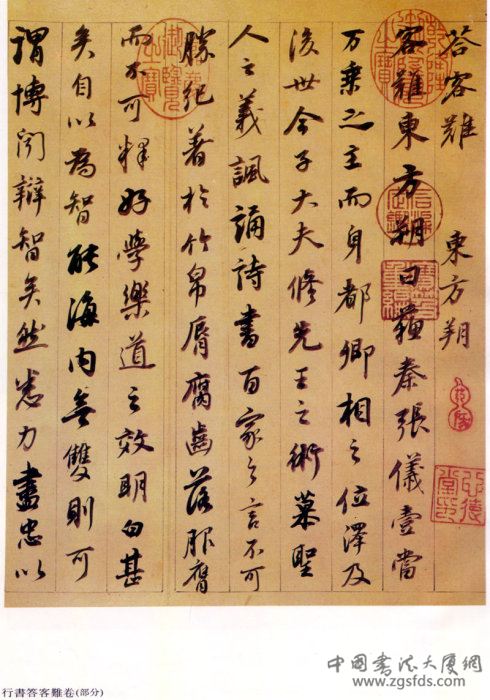 答客難 東方朔
客難東方朔曰蘇秦張儀壹當
万乘之主而身都卿相之位澤及
後世今子大夫修先王之術慕聖
人之義諷誦詩書百家之言不可
勝紀著於竹帛脣腐齒落服膺
而不可釋好學樂道之效明白甚
矣自以為智能海内無雙則可
謂博聞辯智矣然悉力盡忠以
行書答客難卷(部分)
中國書法大厦網
www.zgsfds.com